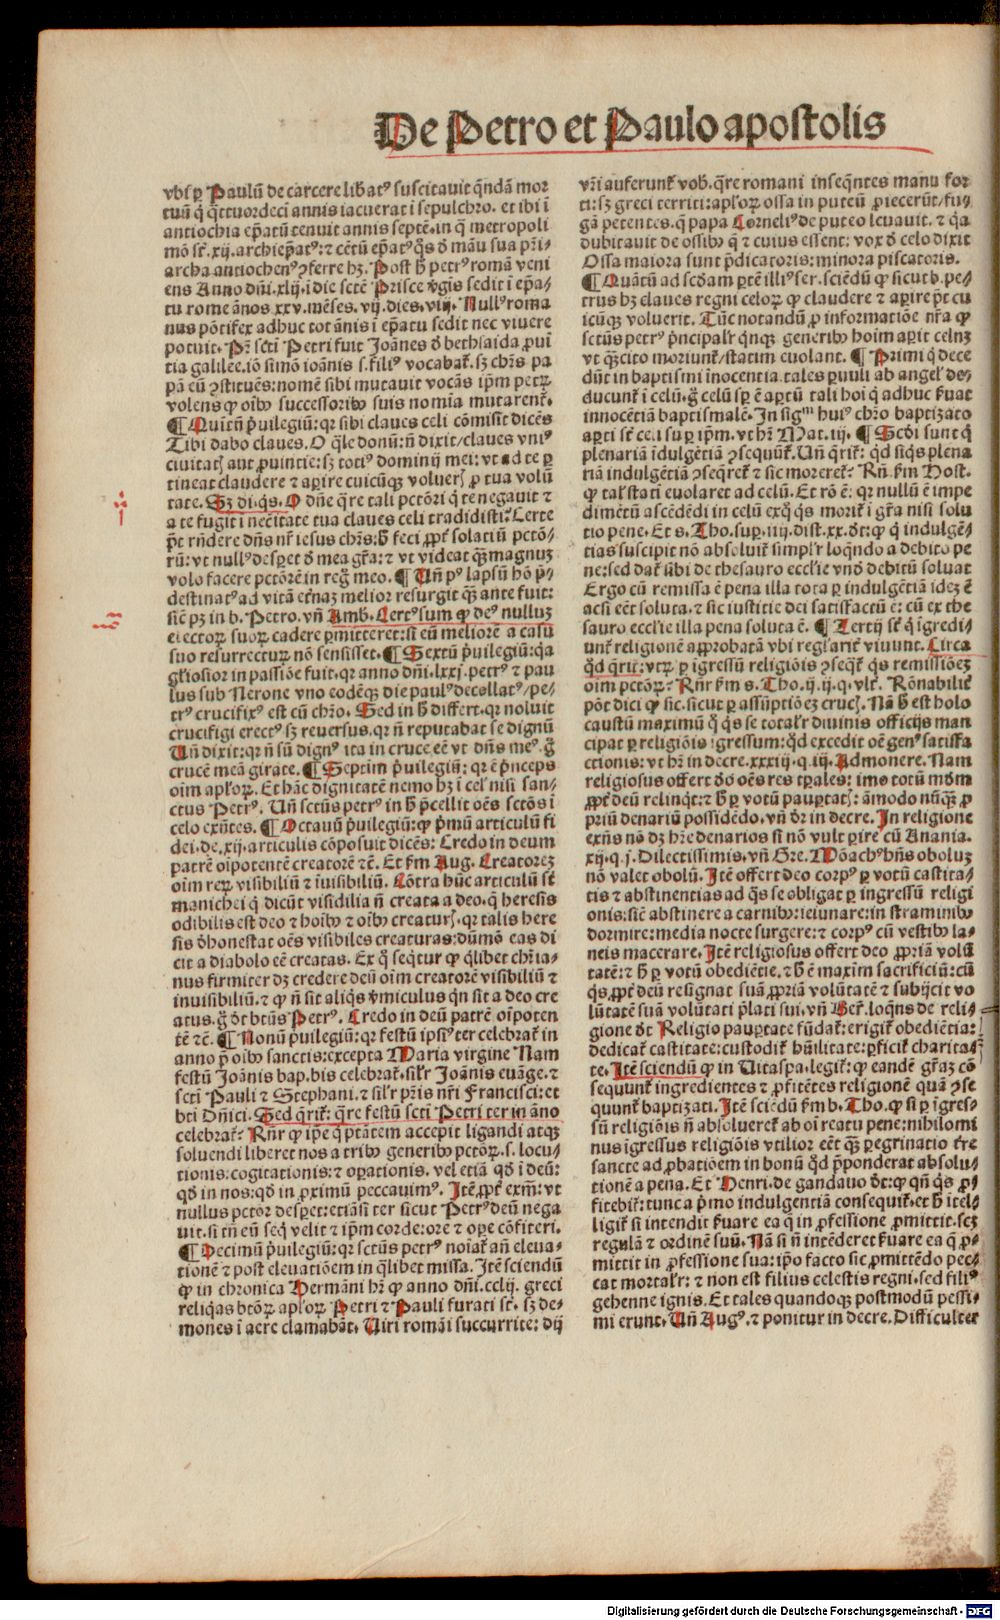 De Petro et Paulo apostolis
vbi ꝑ Paulū de carcere libatꝰ suscitauit q̄ndā mor
tuū q̇ q̄ttuordeci annis iacuerat ī sepulchro. et ibi ī
antiochia ep̄atū tenuit annis septē. in q̄ metropoli
mō st̄. xij. archiep̄atꝰ: ⁊ cētū ep̄atꝰ q̄s d̄ māu sua pr̄i-
archa antiochenꝰ ꝯferre hꝫ. Post h̄ petrꝰ romā veni
ens Anno dn̄i. xlij. i die sctē Prisce v̄gis sedit ī ep̄a/
tu rome ānos xxv. mēses. vij. dies. viij. Nullꝰ roma
nus pōtifex adhuc tot ānis ī ep̄atu sedit nec viuere
potuit. Pr̄ sctī Petri fuit Joānes d̄ bethsaida ꝓuī
tia galilee. iō simō ioānis .s. filiꝰ vocabat᷑. sꝫ chr̄s pa
pā eū ꝯstituēs: nomē sibi mutauit vocās ip̄m petrꝝ
volens ꝙ oībꝰ successoribꝰ suis nomīa mutarent᷑.
¶ Quītū p̄uilegiū: qꝛ sibi claues celi cōmisit dicēs
Tibi dabo claues. O q̄le donū: n̄ dixit/claues vniꝰ
ciuitatꝭ aut ꝓuintie: sꝫ totiꝰ dominij mei: vt ad te ꝑ
tineat claudere ⁊ aꝑire cuicūqꝫ volueris ꝓ tua volū
tate. Sꝫ di. q̄s. O dn̄e q̄re tali pctōri q̇ te negauit ⁊
a te fugit ī necītate tua claues celi tradidisti? Certe
p̄t rn̄dere dn̄s nr̄ iesus chr̄s: h̄ feci ꝓpt᷑ solatiū pctō-
rū: vt nullꝰ desꝑet d̄ mea gr̄a: ⁊ vt videat q̄ꝫ magnuꝫ
volo facere pctōrē in reg̊ meo. ¶ Vn̄ pꝰ lapsū hō p̄-
destinatꝰ ad vitā et̄naꝫ melior resurgit q̄ꝫ ante fuit:
sic̄ pꝫ in b. Petro. vn̄ Amb. Certꝰ sum ꝙ deꝰ nulluꝫ
electoꝝ suoꝝ cadere ꝑmitteret: si eū meliorē a casu
suo resurrecturꝝ nō sensisset. ¶ Sextū p̄uilegiū: q̄a
gl̄iosior in passiōe fuit. qꝛ anno dn̄i. lxxj. petrꝰ ⁊ pau
lus sub Nerone vno eodēqꝫ die paulꝰ decollatꝰ/pe/
trꝰ crucifixꝰ est cū chr̄o. Sed in h̄ differt. qꝛ noluit
crucifigi erectꝰ sꝫ reuersus. qꝛ n̄ reputabat se dignū
Vn̄ dixit: qꝛ n̄ sū dignꝰ ita in cruce eē vt dn̄s meꝰ. g̊
crucē meā girate. ¶ Septim p̄uilegiū: qꝛ ē p̄nceps
oīm apl̄oꝝ. Et hāc dignitatē nemo hꝫ ī cel̊ nisi san-
ctus Petrꝰ. Vn̄ sctūs petrꝰ in h̄ p̄cellit oēs sctōs ī
celo exn̄tes. ¶ Octauū p̄uilegiū: ꝙ p̄mū articulū fi
dei. de. xij. articulis cōposuit dicēs: Credo in deum
patrē oīpotentē creatorē ⁊c̄. Et ẜm Aug. Creatoreꝫ
oīm reꝝ visibiliū ⁊ īuisibiliū. Cōtra hūc articulū st̄
manichei q̇ dicūt visibilia n̄ creata a deo. q̄ heresis
odibilis est deo ⁊ hoībꝰ ⁊ oībꝰ creaturꝭ. qꝛ talis here
sis d̄honestat oēs visibiles creaturas: dūmō eas di
cit a diabolo eē creatas. Ex q̊ seq̄tur ꝙ q̄libet chr̄ia-
nus firmiter dꝫ credere deū oīm creatorē visibiliū ⁊
inuisibiliū. ⁊ ꝙ n̄ sit aliq̇s v̄miculus q̇n sit a deo cre
atus. g̊ d̄t btūs Petrꝰ. Credo in deū patrē oīpoten
tē ⁊c̄. ¶ Nonū p̄uilegiū: qꝛ festū ipsiꝰ ter celebrat᷑ in
anno p̄ oībꝰ sanctis: excepta Maria virgine Nam
festū Joānis bap. bis celebrat᷑. sil̄r Joānis euāge. ⁊
sctī Pauli ⁊ Stephani. ⁊ sil̄r pr̄is nr̄i Francisci: et
bti Dn̄ici. Sed q̄rit᷑: q̄re festū sctī Petri ter in āno
celebrat᷑? Rn̄r ꝙ ip̄e q̇ ptātem accepit ligandi atqꝫ
soluendi liberet nos a tribꝰ generibꝰ pctōꝝ. s. locu/
tionis: cogitationis: ⁊ oꝑationis. vel etiā qd̄ ī deū:
qd̄ in nos: qd̄ in ꝓximū peccauimꝰ. Itē ꝓpt᷑ exm̄: vt
nullus pctōr desꝑet: etiāsi ter sicut Petrꝰ deū nega
uit. si tn̄ eū seq̇ velit ⁊ ip̄m corde: ore ⁊ oꝑe cōfiteri.
¶ Decimū p̄uilegiū: qꝛ sctūs petrꝰ noīat᷑ an̄ eleua-
tionē ⁊ post eleuatiōem in q̄libet missa. Itē sciendū
ꝙ in chronica Hermāni hr̄ ꝙ anno dn̄i. cclij. greci
reliq̇as btōꝝ apl̄oꝝ Petri ⁊ Pauli furati st̄. sꝫ de-
mones ī aere clamabāt. Viri romāi succurrite: dij
vr̄i auferunt᷑ vob̄. q̄re romani inseq̄ntes manu for
ti: sꝫ greci territi: apl̄oꝝ ossa in puteū ꝓiecerūt/fu/
gā petentes. q̄ papa Corneliꝰ de puteo leuauit. ⁊ q̄a
dubitauit de ossibꝰ q̄ ⁊ cuius essent: vox d̄ celo dixit
Ossa maiora sunt p̄dicatoris: minora piscatoris.
¶ Quātū ad scd̄am ꝑtē illiꝰ ser. sciēdū ꝙ sicut b. pe-
trus hꝫ claues regni celoꝝ ꝙ claudere ⁊ aꝑire p̄t cu
icūqꝫ voluerit. Tūc notandū ꝓ informatiōe nr̄a ꝙ
sctūs petrꝰ p̄ncipalr̄ q̇nqꝫ generibꝰ hoīm aꝑit celuꝫ
vt q̄ꝫcito moriunt᷑/statim euolant. ¶ Primi q̇ dece
dūt in baptismi īnocentia. tales ꝑuuli ab angel̄ deꝫ
ducunt᷑ ī celū. g̊ celū sꝑ ē aꝑtū tali hoī q̇ adhuc ẜuat
innocētiā baptismalē. In sigᵐ huiꝰ chr̄o baptizato
aꝑti st̄ celi suꝑ ip̄m. vt hr̄ Mat. iij. ¶ Scd̄i sunt q̇
plenariā īdulgētiā ꝯsequūt᷑. Vn̄ q̄rit᷑: qd̄ siq̇s plena
riā indulgētiā ꝯseq̄ret᷑ ⁊ sic moreret᷑? Rn̄. ẜm Host.
ꝙ tal̄ statī euolaret ad celū. Et rō ē: qꝛ nullū ē impe
dimētū ascēdēdi in celū exq̊ q̇s morit᷑ ī gr̄a nisi solu
tio pene. Et s. Tho. suꝑ. iiij. dist. xx. d̄t: ꝙ q̇ indulgē-
tias suscipit nō absoluit᷑ simpl̄r loq̄ndo a debito pe
ne: sed dat᷑ sibi de thesauro eccl̄ie vnd̄ debitū soluat
Ergo cū remissa ē pena illa tota ꝑ indulgētiā ideꝫ ē
acsi eēt soluta. ⁊ sic iustitie dei satisfactū ē: cū ex the
sauro eccl̄ie illa pena soluta ē. ¶ Tertij st̄ q̇ īgredi-
unt᷑ religionē aꝓbatā vbi regl̄arit᷑ viuunt. Circa
qd̄ q̄rit᷑: vtꝝ ꝑ īgressū religiōis ꝯseq̄t᷑ q̇s remissiōeꝫ
oīm pctōꝝ? Rn̄r ẜm s. Tho. ij. ij. q. vlt᷑. Rōnabilit᷑
pōt dici ꝙ sic. sicut ꝑ assūptiōeꝫ crucꝭ. Nā h̄ est holo
caustū maximū q̊ q̇s se total̄r diuinis officijs man
cipat ꝑ religiōis īgressum: qd̄ excedit oē genꝰ satisfa
ctionis: vt hr̄ in decre. xxxiij. q. iij. Admonere. Nam
religiosus offert d̄o oēs res tꝑales: imo totū mōm
ꝓpt᷑ deū relinq̇t: ⁊ h̄ ꝑ votū pauꝑtatꝭ: āmodo nūq̄ꝫ ꝓ
priū denariū possidēdo. vn̄ d̄r in decre. In religione
exn̄s nō dꝫ hr̄e denarios si nō vult ꝑire cū Anania.
xij. q. j. Dilectissimis. vn̄ Gre. Mōachꝰ hn̄s oboluꝫ
nō valet obolū. Itē offert deo corpꝰ ꝑ votū castita-
tis ⁊ abstinentias ad q̄s se obligat ꝑ ingressū religi
onis: sic̄ abstinere a carnibꝰ: ieiunare: in straminibꝰ
dormire: media nocte surgere: ⁊ corpꝰ cū vestibꝰ la-
neis macerare. Itē religiosus offert deo ꝓpriā volū
tatē: ⁊ h̄ ꝑ votū obediētie. ⁊ h̄ ē maxim sacrificiū: cū
q̇s ꝓpt᷑ deū resignat suā ꝓpriā volūtatē ⁊ subijcit vo
lūtatē suā volūtati p̄lati sui. vn̄ Ber. loqn̄s de reli-
gione d̄t Religio pauꝑtate fūdat᷑: erigit᷑ obediētia:
dedicat᷑ castitate: custodit᷑ hūilitate: ꝑficit᷑ charita-
te. Itē sciendū ꝙ in Vitaspa. legit᷑: ꝙ eandē gr̄aꝫ cō
sequunt᷑ ingredientes ⁊ ꝓfitētes religionē quā ꝯse
quunt᷑ baptizati. Itē sciēdū ẜm b. Tho. ꝙ si ꝑ īgres-
sū religiōis n̄ absolueret᷑ ab oī reatu pene: nihilomi
nus īgressus religiōis vtilior eēt q̄ꝫ ꝑegrinatio tr̄e
sancte ad ꝓbatiōem in bonū qd̄ p̄ponderat absolu-
tionē a pena. Et Henri. de gandauo d̄t: ꝙ qn̄ q̇s ꝓ-
fitebit᷑: tunc a p̄mo indulgentiā consequit᷑. et h̄ ītel-
ligit᷑ si intendit ẜuare ea q̄ in ꝓfessione ꝓmittit. scꝫ
regulā ⁊ ordinē suū. Nā si n̄ intēderet ẜuare ea q̄ ꝓ-
mittit in ꝓfessione sua: ip̄o facto sic ꝓmittēdo pec-
cat mortal̄r: ⁊ non est filius celestis regni. sed filiꝰ
gehenne ignis. Et tales quandoqꝫ postmodū pessi-
mi erunt. Vn̄ Augꝰ. ⁊ ponitur in decre. Difficulter
Digitalisierung gefördert durch die Deutsche Forschungsgemeinschaft - DFG